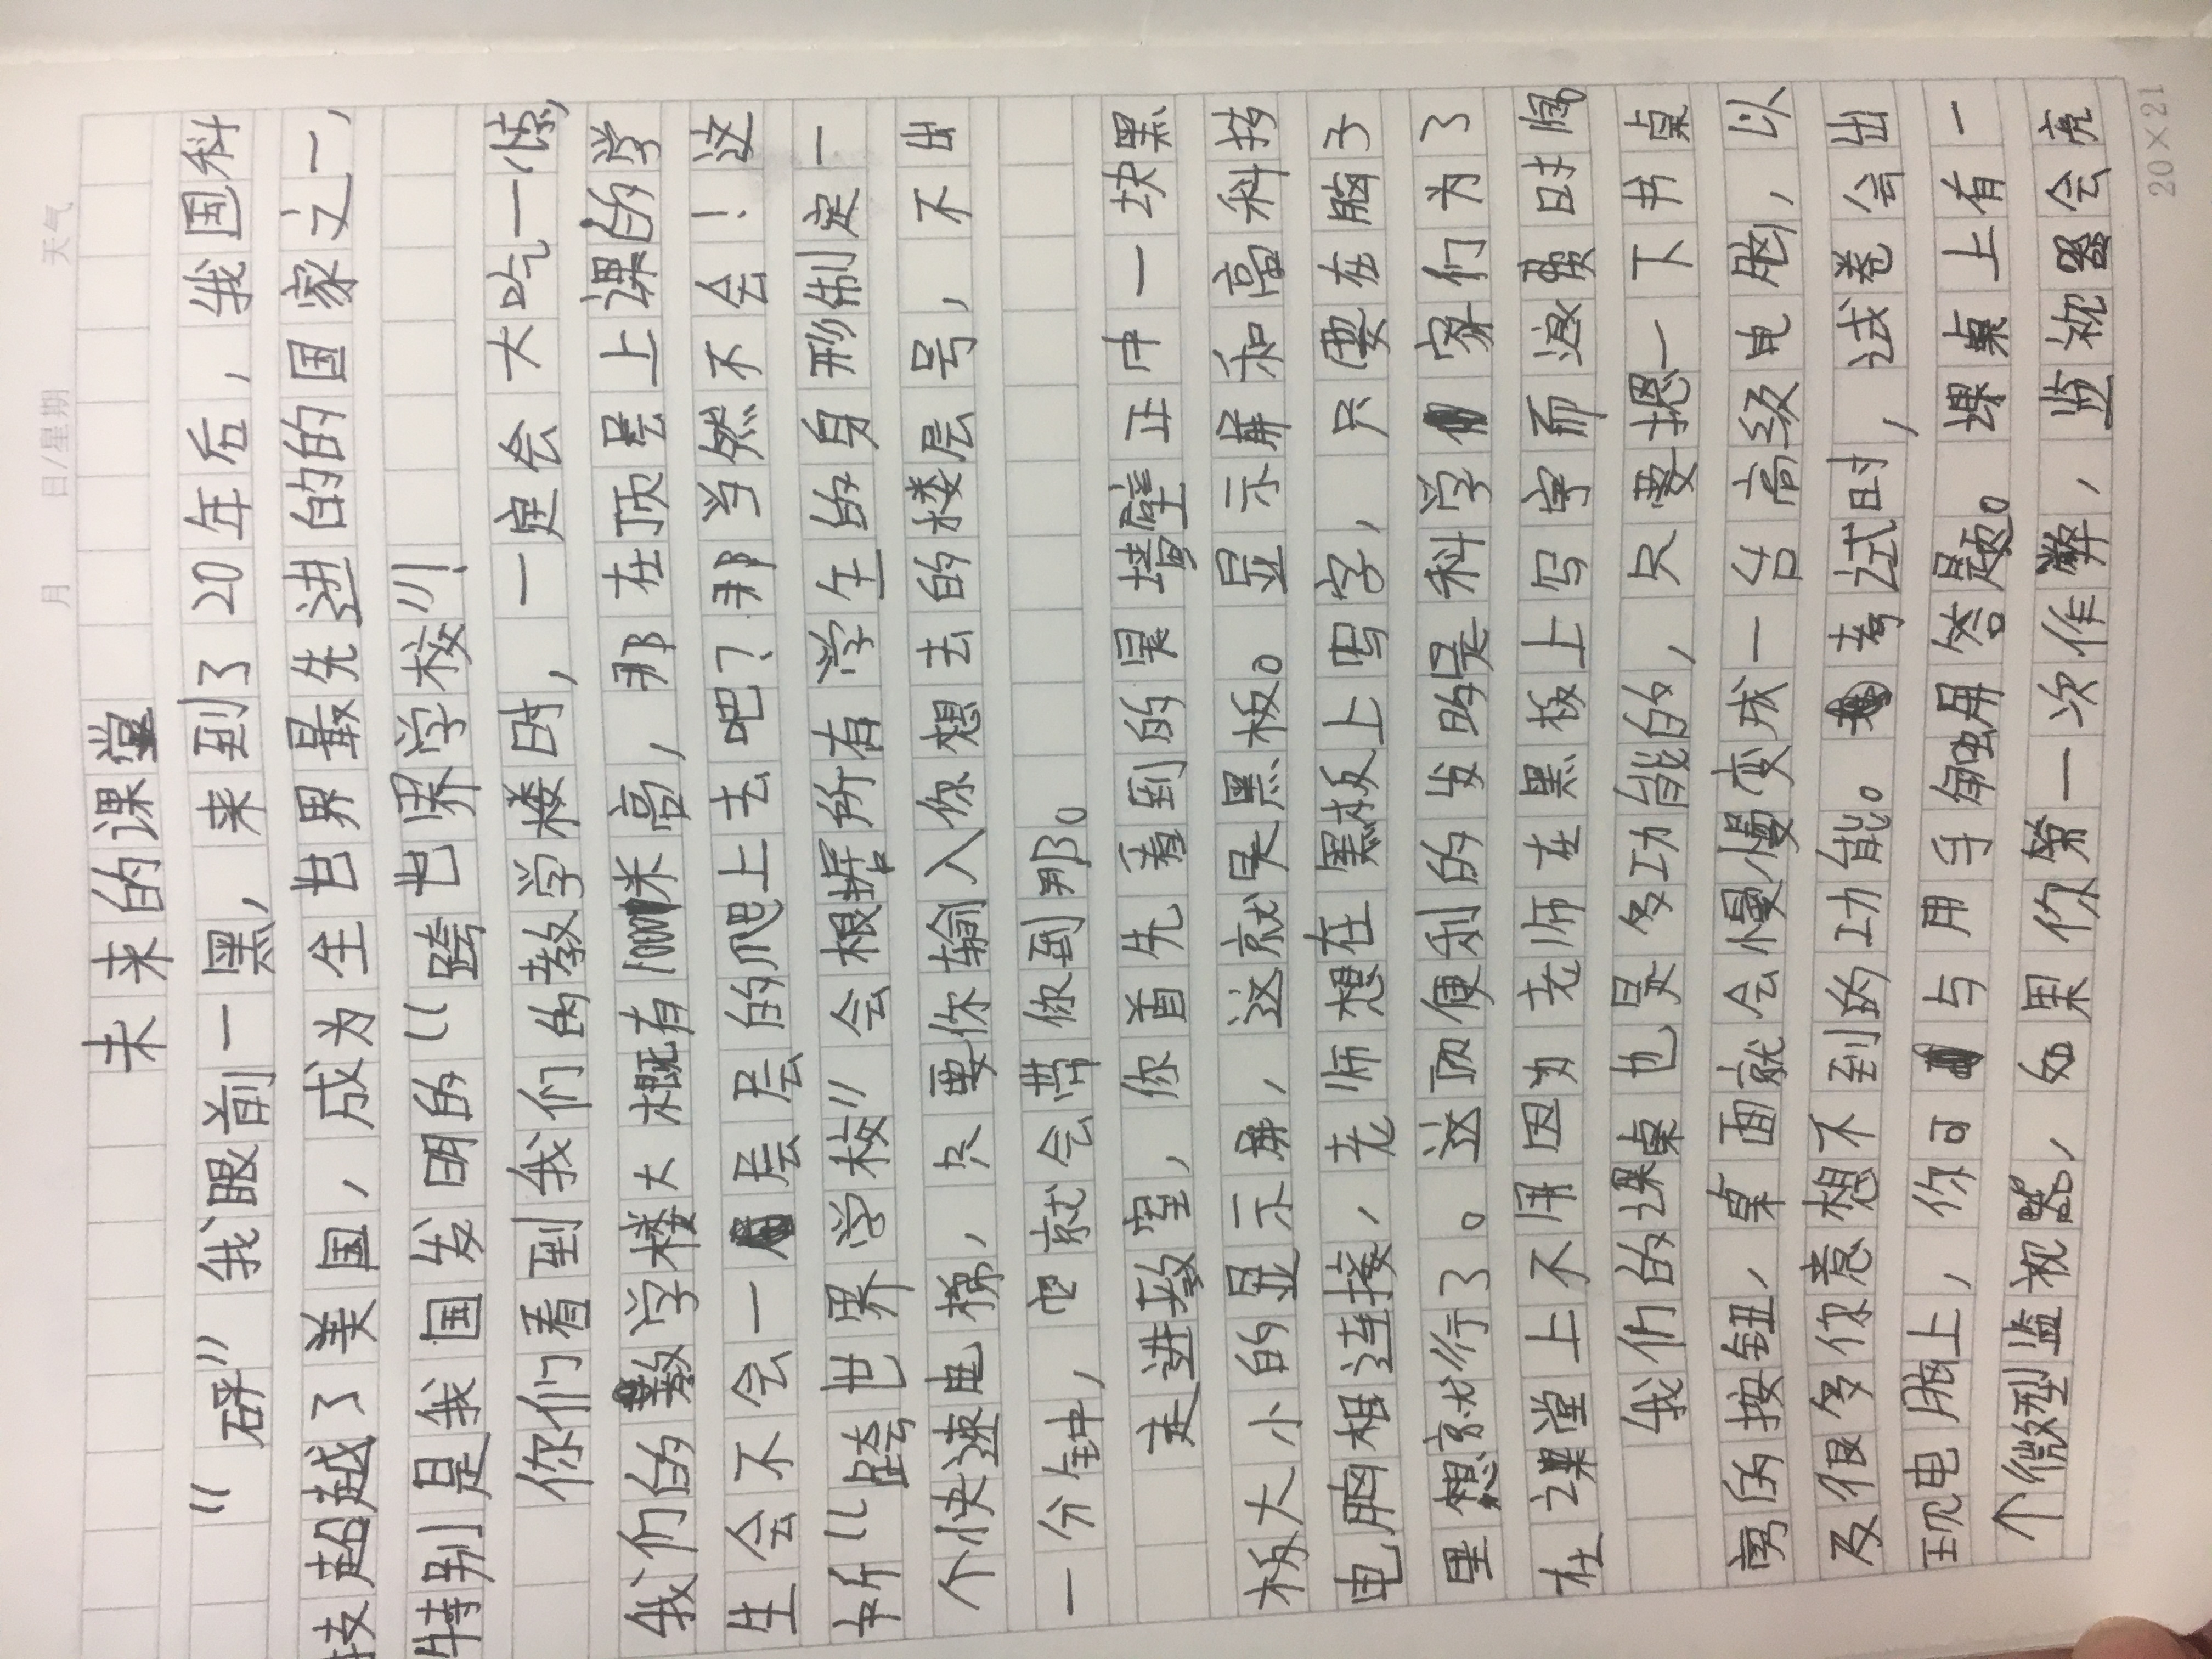 月 日/星期 天气
未来的课堂
“砰”我眼前一黑，来到了20年后，我国科
技超越了美国，成为全世界最先进的的国家之一，
特别是我国发明的“跨世界学校”！
你们看到我们的教学楼时，一定会大吃一惊，
我们的教学楼大概有1000米高，那在顶层上课的学
生会不会一层层的爬上去吧？那当然不会！这
所“跨世界学校”会根据所有学生的身形制定一
个快速电梯，只要你输入你想去的楼层号，不出
一分钟，它就会带你到那。
走进教室，你首先看到的是墙壁正中一块黑
板大小的显示屏，这就是黑板。显示屏和高科技
电脑相连接，老师想在黑板上写字，只要在脑子
里想就行了。这项便利的发明是科学家们为了
在课堂上不用因为老师在黑板上写字而浪费时间
我们的课桌也是多功能的，只要摁一下书桌
旁的按钮，桌面就会慢慢变成一台高级电脑，以
及很多你意想不到的功能。考试时，试卷会出
现电脑上，你可与用手触屏答题。课桌上有一
个微型监视器，如果你第一次作弊，监视器会亮
20×21